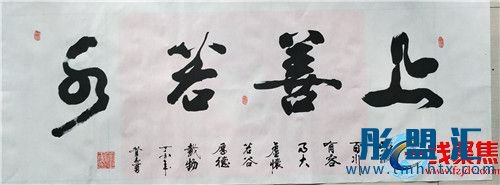 上善若水
百川
有容
乃大
虛懷
若谷
厚德
載物
彤盟汇
线聚焦